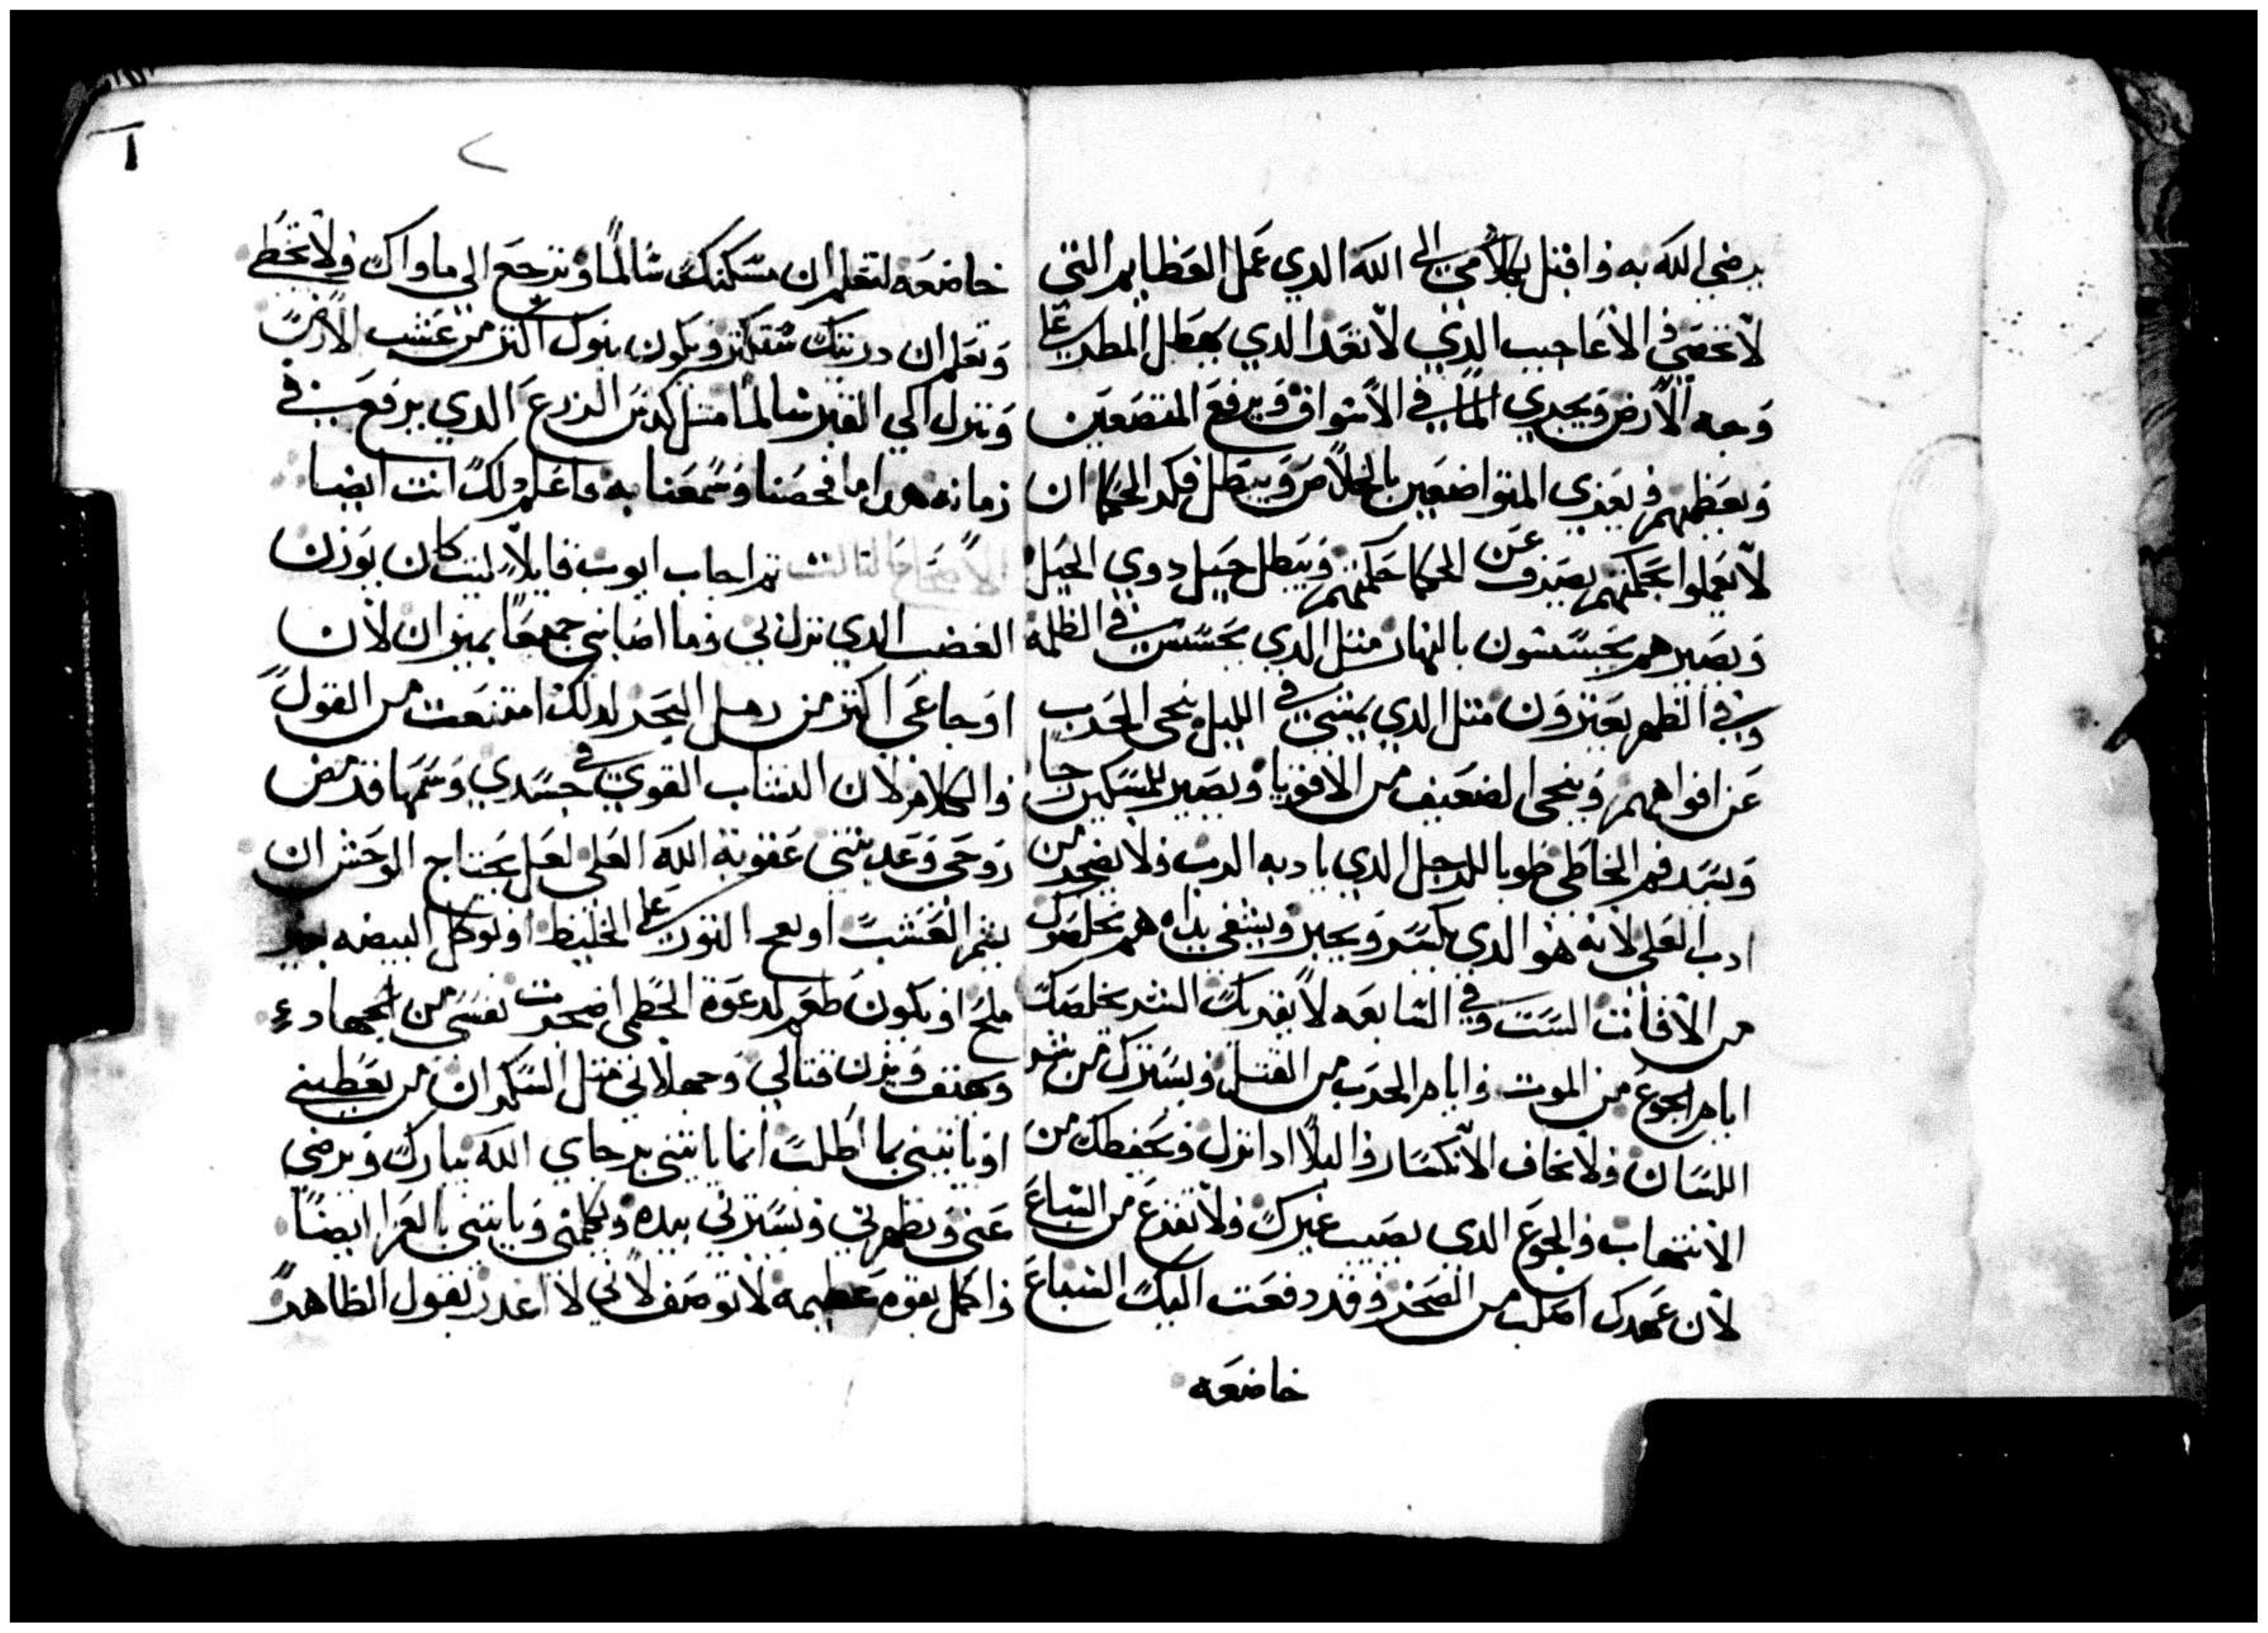 يرضي الله به واقبل بكلامي الي الله الدي عمل العظايم التي
لا تحصي والاعاجيب الذي لا تعد الدي يهطل المطر علي
وجه الارض ويجري الما في الاسواق ويرفع المتضعين
ويعظمهم ويعزي المتواضعين بالخلاص ويبطل فكر الحكما ان
لا يعملوا بحكمتهم يصرف عن الحكما حكمتهم ويبطل حيل دوي الحيل
ويصيرهم يحسسون بالنهار متل الدي يحسس في الظلمه
وفي الظهر يعترون متل الدي يمشي في الليل ينجي الحرب
عن افواههم وينجي الضعيف من الاقويا ويصير للمسكين رجا
ويسد فم الخاطي طوبا للرجل الدي يادبه الرب ولا يضجر من
ادب العلي لانه هو الدي يكسر ويجبر ويشفي يداه هم يخلصوك
من الافات الست وفي السابعه لا يقربك الشر يخلصك
ايام الجوع من الموت وايام الحرب من القتل ويسترك من شر
اللسان ولا تخاف الانكسار والبلا ادا نزل ويحفظك من
الانتهاب والجوع الدي يصيب غيرك ولا تفزع من السباع
لان عهدك اصلب من الصخر وقد دفعت اليك السباع
خاضعه
خاضعه لتعلم ان مسكنك سالما وترجع الي ماواك ولا تخطي
وتعلم ان دريتك ستكتر ويكون بنوك اكتر من عشب الارض
وتنزل الي القبر سالما متل كدس الزرع الدي يرفع في
زمانه هدا ما فحصنا وسمعنا به فاعلم دلك انت ايضا
الاصحاح التالت تم اجاب ايوب قايلا ليت كان يوزن
الغضب الدي نزل بي وما اصابني جمعها بميزان لان
اوجاعي اكتر من رمل البحر لدلك امتنعت من القول
والكلام لان النشاب القوي في جسدي وسمها قد مص
روحي وعدبتني عقوبة الله العلي لعل يحتاج الوحش ان
يشم العشب او يعج التور علي الخليط او توكل البيضه بغير
ملح او يكون طعم لدعوة الحطمي اضجرت نفسي من الجهاد
ويهتف ويزن قتالي وجهلاني متل السكران من يعطيني
او ياتيني بما اطلب انما ياتيني برجاي الله تبارك ويرضي
عني ويطهرني ويسترني بيده ويكلمني وياتيني بالعزا ايضا
واكمل بقوه عظيمه لا توصف لاني لا اعدر بقول الطاهر